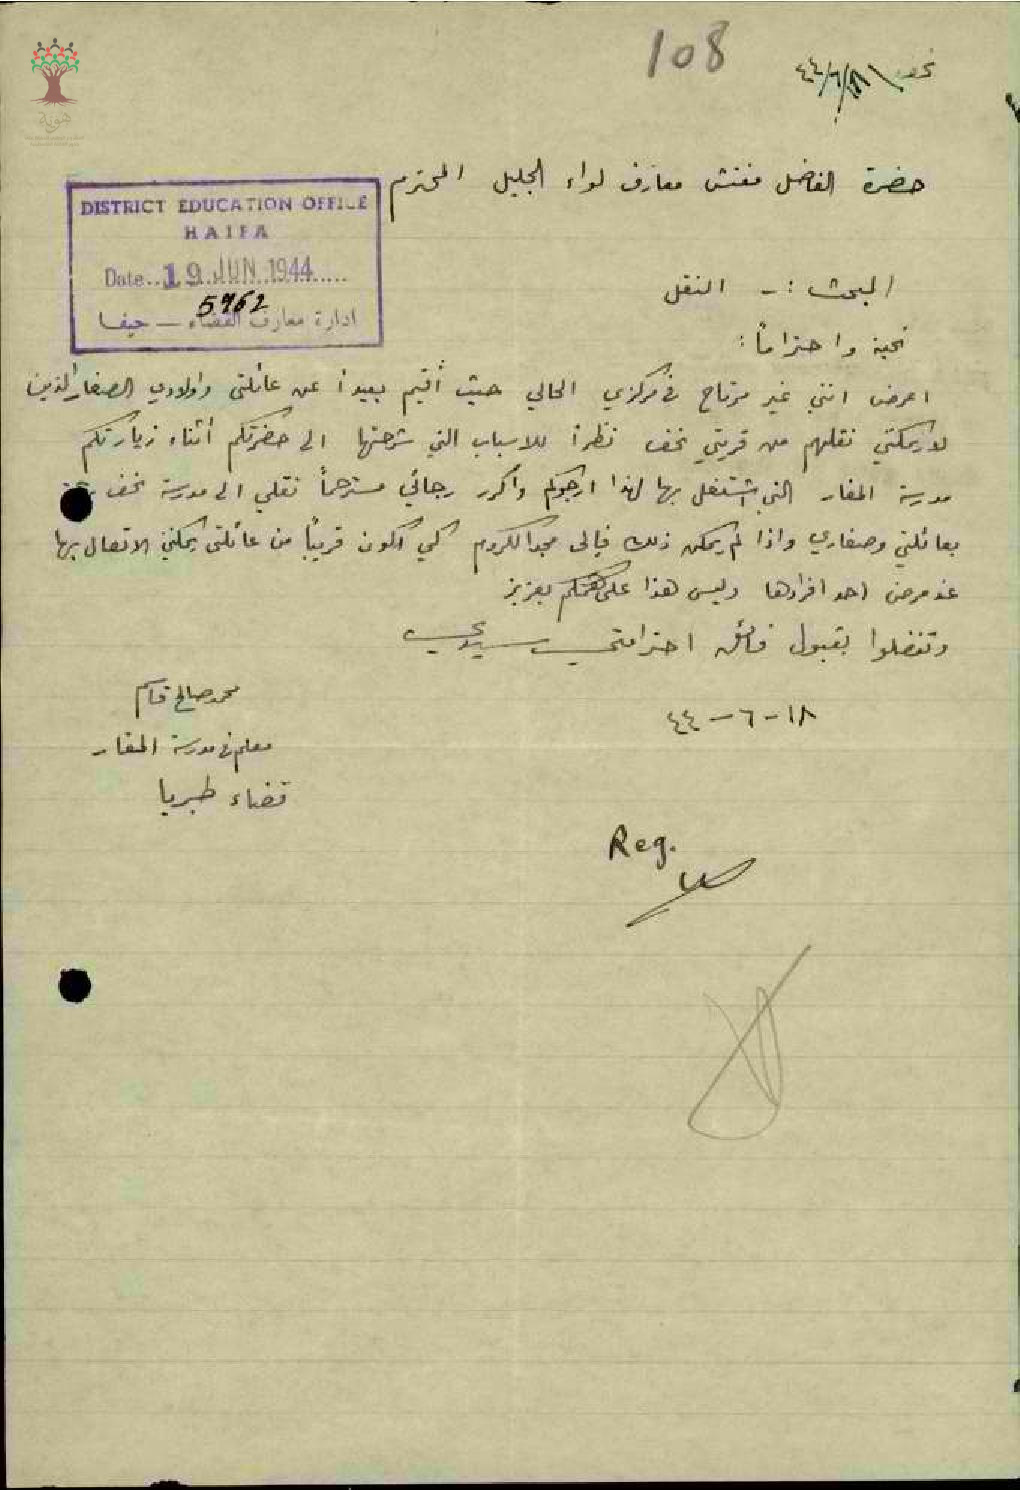 108
نحف ١٨/٦/٤٤
حضرة الفاضل مفتش معارف لواء الجليل المحترم
DISTRICT EDUCATION OFFICE
HAIFA
Date 19 JUN 1944
5962
ادارة معارف القضاء — حيفا
البحث :- النقل
تحية واحتراماً :
اعرض انني غير مرتاح في مركزي الحالي حيث أقيم بعيداً عن عائلتي واولادي الصغار الذين
لا يمكنني نقلهم من قريتي نحف نظراً للاسباب التي شرحتها الى حضرتكم أثناء زيارتكم
مدرسة المغار التي اشتغل بها لهذا ارجوكم واكرر رجائي مسترحماً نقلي الى مدرسة نحف
بعائلتي وصغاري واذا لم يمكن ذلك فإلى مجد الكروم كي اكون قريباً من عائلتي يمكنني الاتصال بها
عند مرض احد افرادها وليس هذا على همتكم بعزيز
وتفضلوا بقبول فائق احترامي سيدي
محمد صالح قاسم
١٨-٦-٤٤
معلم في مدرسة المغار
قضاء طبريا
Reg.
هوية